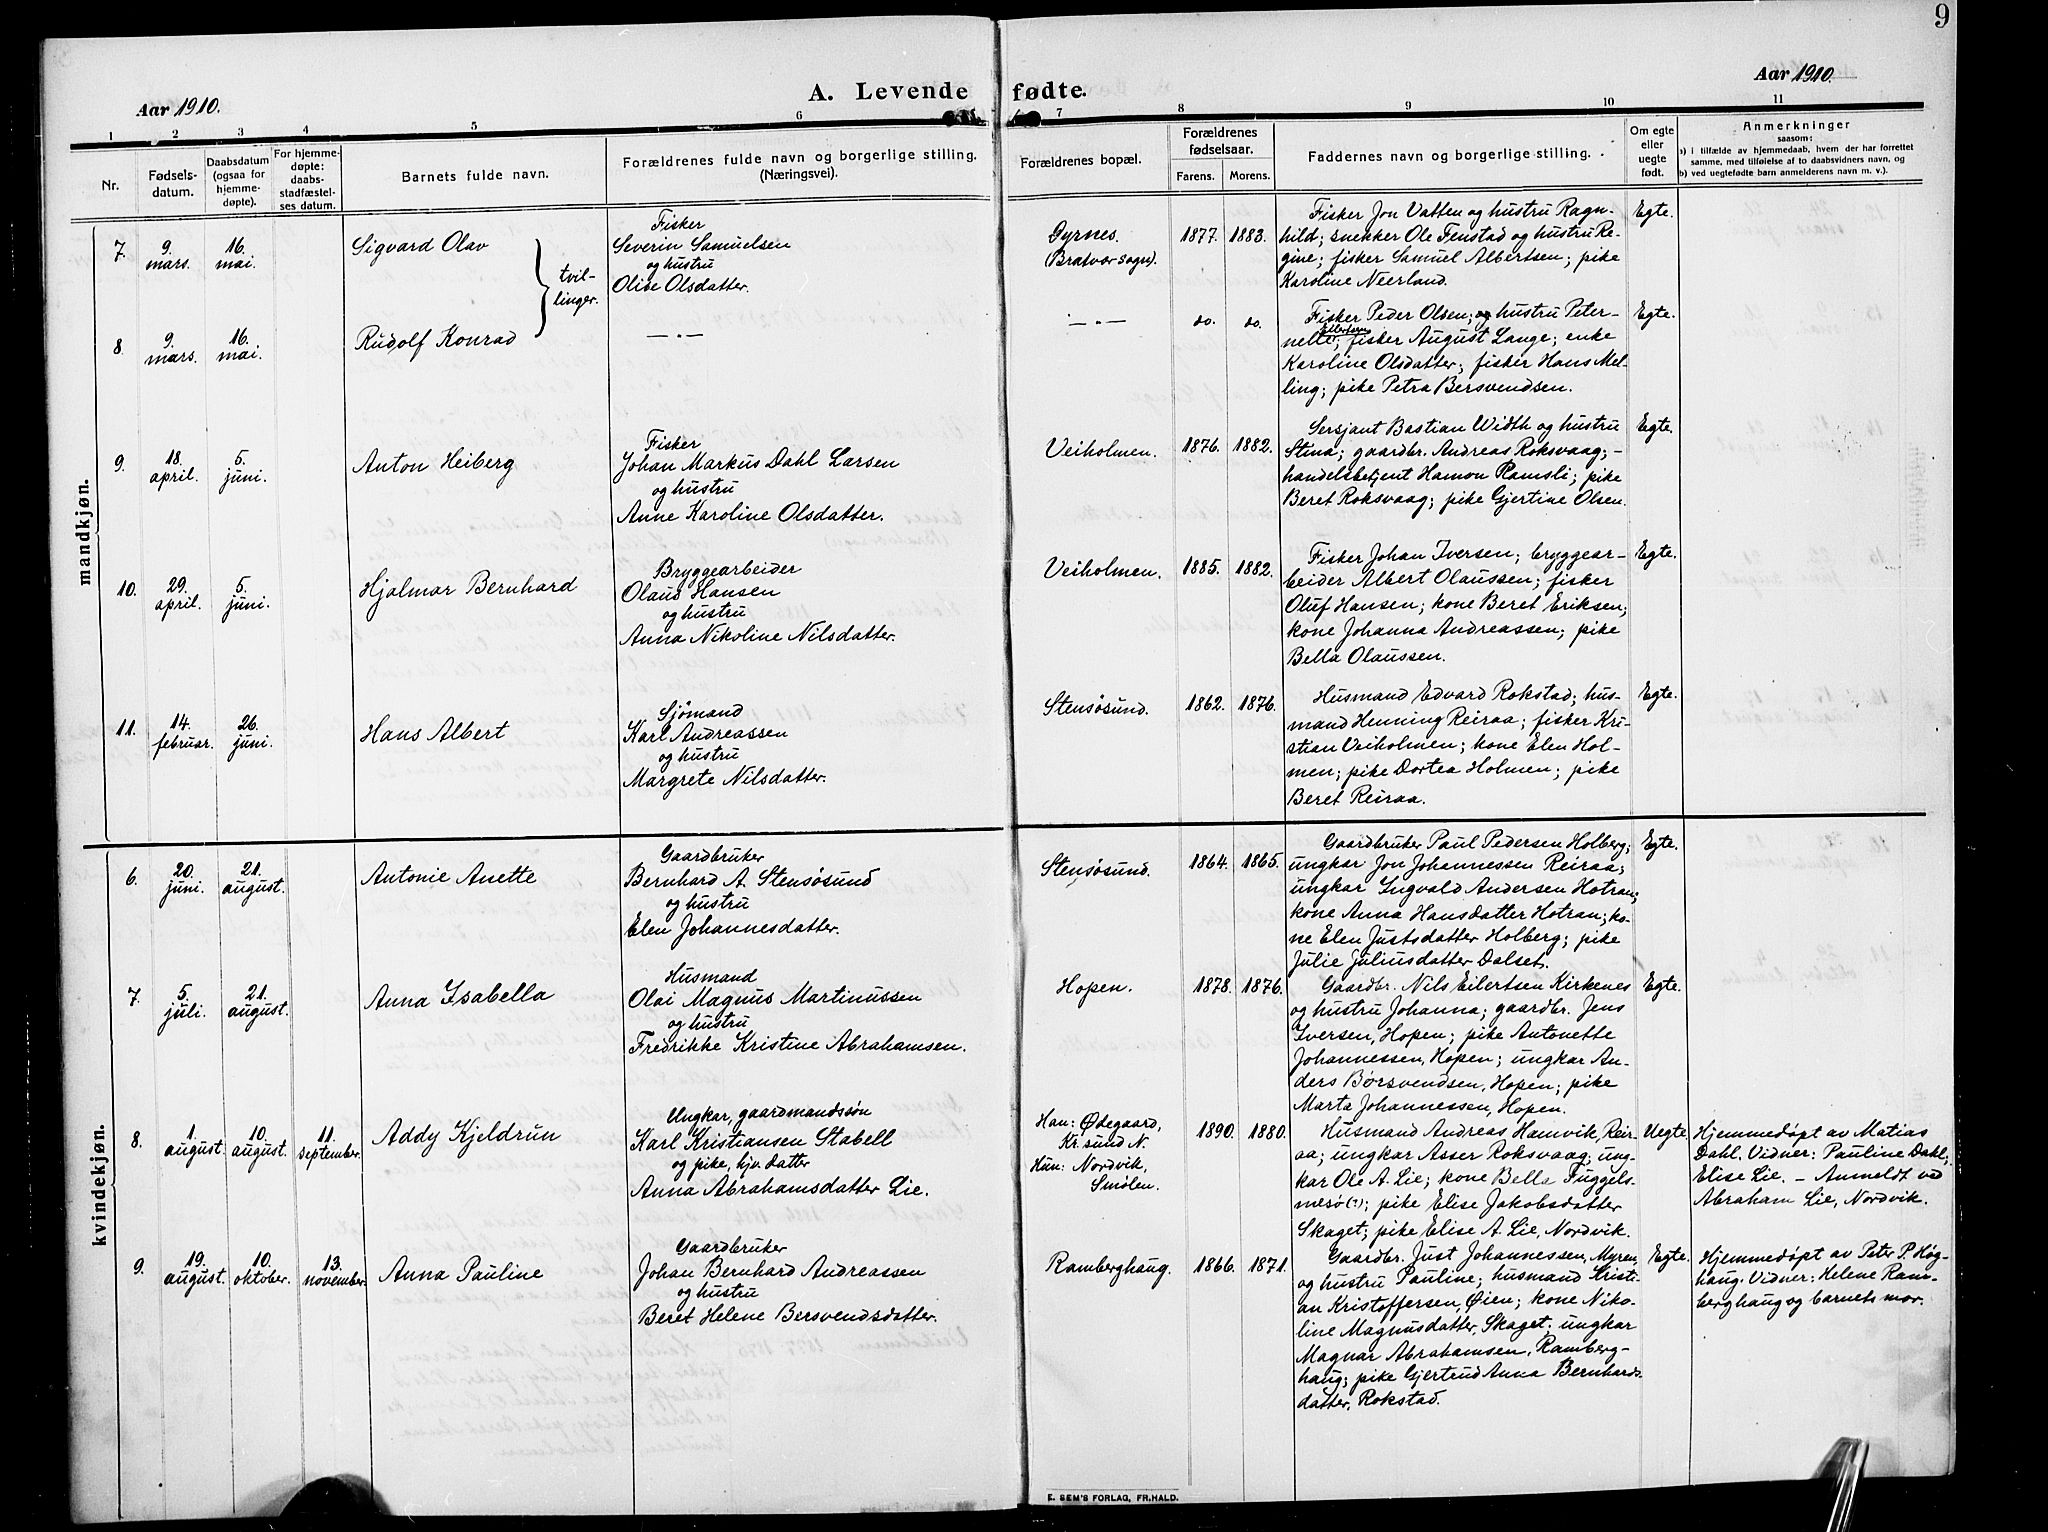 9
Aar 1910.
A. Levende fødte.
Aar 1910.
1 2 3 4 5 6 7 8 9 10 11
Nr.
Fødsels-
datum.
Daabsdatum
(ogsaa for
hjemme-
døpte).
For hjemme-
døpte:
daabs-
stadfæstel-
ses datum.
Barnets fulde navn.
Forældrenes fulde navn og borgerlige stilling.
(Næringsvei).
Forældrenes bopæl.
Forældrenes
fødselsaar.
Farens. Morens.
Faddernes navn og borgerlige stilling.
Om egte
eller
uegte
født.
Anmerkninger
saasom:
a) i tilfælde av hjemmedaab, hvem der har forrettet
samme, med tilføielse af to daabsvidners navn, og
b) ved uegtefødte barn anmelderens navn m. v.).
mandkjøn.
7.
9.
mars.
16.
mai.
Sigvard Olav
tvil-
linger.
Fisker
Severin Samuelsen
og hustru
Olive Olsdatter.
Dyrnes.
(Bratvær sogn).
1877. 1883.
Fisker Jon Vatten og hustru Ragn-
hild; snekker Ole Fenstad og hustru Re-
gine; fisker Samuel Albertsen; pike
Karoline Neerland.
Egte.
8.
9.
mars.
16.
mai.
Rudolf Konrad
— „ —
— „ —
do. do.
Fisker Peder Olsen; og hustru Peter-
nelle; fisker August Lange; enke
Karoline Olsdatter; fisker Hans Mel-
ling; pike Petra Bersvendsen.
Egte.
9.
18.
april.
5.
juni.
Anton Heiberg
Fisker
Johan Markus Dahl Larsen
og hustru
Anne Karoline Olsdatter.
Veiholmen.
1876. 1882.
Sersjant Bastian Width og hustru
Stina; gaardbr. Andreas Roksvaag; -
handelsbetjent Hamon Ramsli; pike
Beret Roksvaag; pike Gjertine Olsen.
Egte.
10.
29.
april.
5.
juni.
Hjalmar Bernhard
Bryggearbeider
Olaus Hansen
og hustru
Anna Nikoline Nilsdatter.
Veiholmen.
1885. 1882.
Fisker Johan Iversen; bryggear-
beider Albert Olaussen; fisker
Oluf Hansen; kone Beret Eriksen;
kone Johanna Andreassen; pike
Bella Olaussen.
Egte.
11.
14.
februar.
26.
juni.
Hans Albert
Sjömand
Karl Andreassen
og hustru
Margrete Nilsdatter.
Stensøsund.
1862. 1876.
Husmand Edvard Rokstad; hus-
mand Henning Reiraa; fisker Kri-
stian Veiholmen; kone Elen Hol-
men; pike Dortea Holmen; pike
Beret Reiraa.
Egte.
kvindekjøn.
6.
20.
juni.
21.
august.
Antonie Anette
Gaardbruker
Bernhard A. Stensøsund
og hustru
Elen Johannesdatter.
Stensøsund.
1864. 1865.
Gaardbruker Paul Pedersen Holberg;
ungkar Jon Johannessen Reiraa;
ungkar Ingvald Andersen Hotran;
kone Anna Hansdatter Hotran; ko-
ne Elen Justsdatter Holberg; pike
Julie Juliusdatter Dalset.
Egte.
7.
5.
juli.
21.
august.
Anna Isabella
Husmand
Olai Magnus Martinussen
og hustru
Fredrikke Kristine Abrahamsen.
Hopen.
1878. 1876.
Gaardbr. Nils Eilertsen Kirkenes
og hustru Johanna; gaardbr. Jens
Iversen, Hopen; pike Antonette
Johannessen, Hopen; ungkar An-
ders Børsvendsen, Hopen; pike
Marta Johannessen, Hopen.
Egte.
8.
1.
august.
10.
august.
11.
september.
Addy Kjeldrun
Ungkar, gaardmandssøn
Karl Kristiansen Stabell
og pike, hjv. datter
Anna Abrahamsdatter Lie.
Han: Ødegaard,
Kr. sund N.
Hun: Nordvik,
Smølen.
1890. 1880.
Husmand Andreas Hamvik, Reir-
aa; ungkar Asser Roksvaag; ung-
kar Ole A. Lie; kone Bella Fuggels-
mesö (?); pike Elise Jakobsdatter
Skaget; pike Elise A. Lie, Nordvik.
Uegte.
Hjemmedøpt av Matias
Dahl. Vidner: Pauline Dahl;
Elise Lie. – Anmeldt ved
Abraham Lie, Nordvik.
9.
19.
august.
10.
oktober.
13.
november.
Anna Pauline
Gaardbruker
Johan Bernhard Andreassen
og hustru
Beret Helene Bersvendsdatter.
Ramberghaug.
1866. 1871.
Gaardbr. Just Johannessen, Myren,
og hustru Pauline; husmand Kristi-
an Kristoffersen, Øien; kone Niko-
line Magnusdatter, Skaget; ungkar
Magnar Abrahamsen, Ramberg-
haug; pike Gjertrud Anna Bernhards-
datter, Rokstad.
Egte.
Hjemmedøpt av Peter P. Høg-
haug. Vidner: Helene Ram-
berghaug og barnets mor.
E. SEM'S FORLAG, FR.HALD.